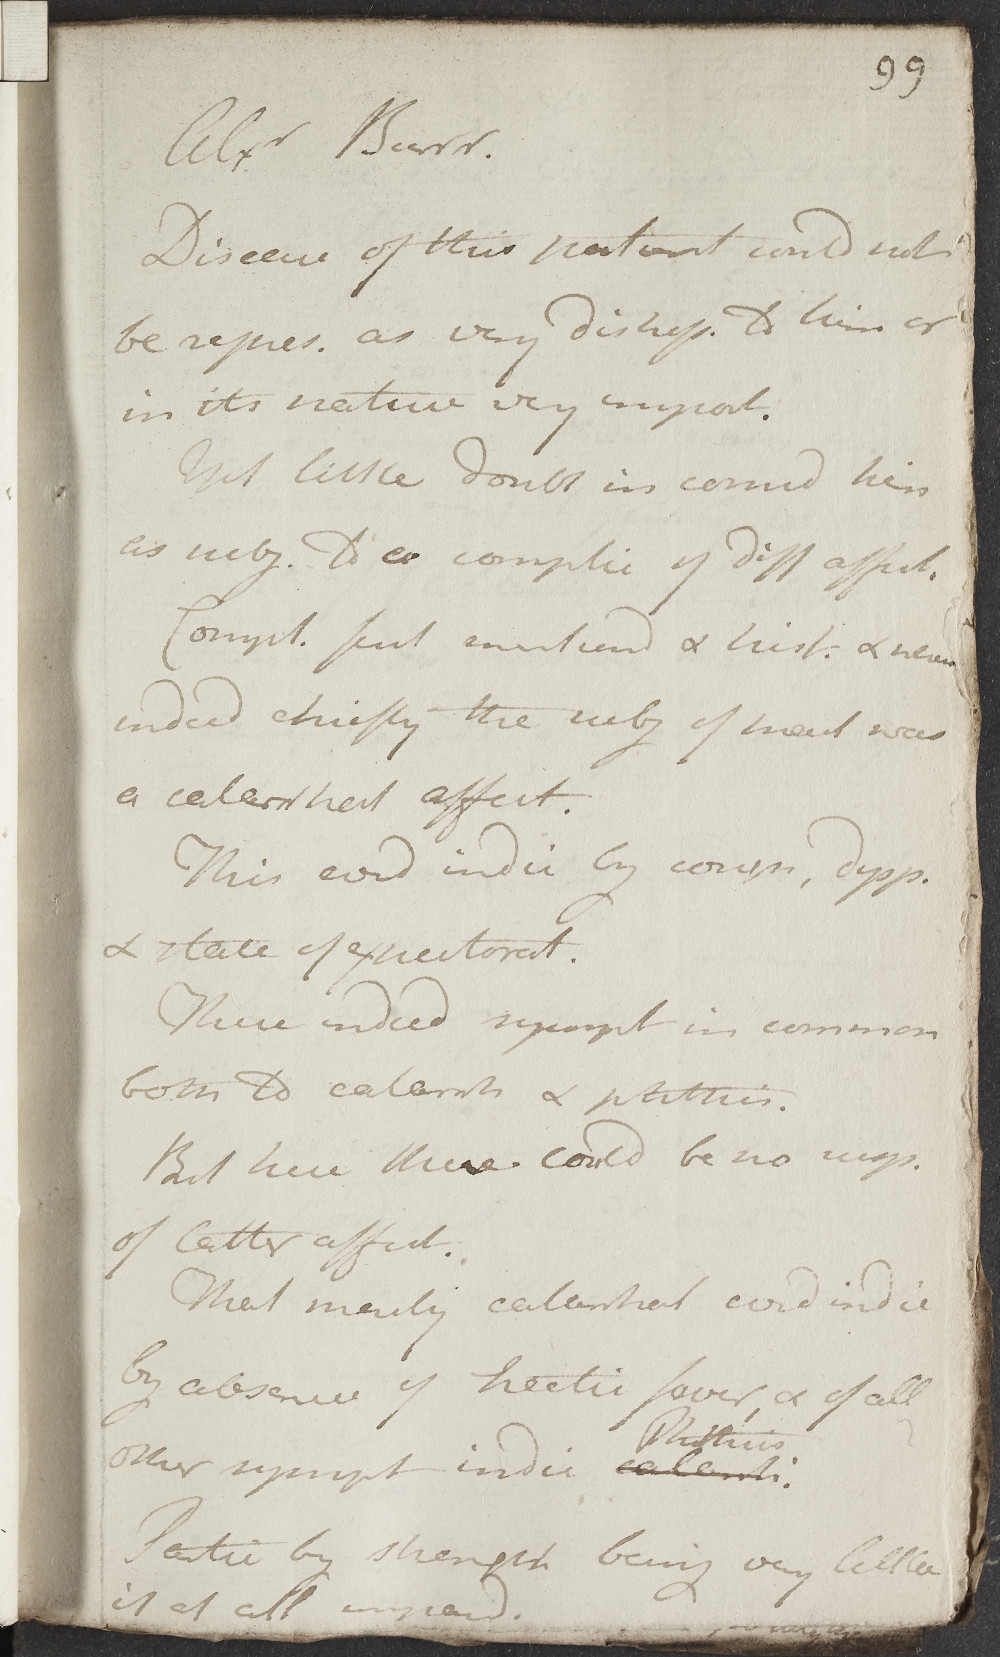 99
Alexr Burr.
Disease of this patient could not
be repres. as very distress. to him or
in its nature very import.
Yet little doubt in consid him
as subj. to a complic of diff affect.
Compl. first mentiond & hist. &
indeed chiefly the subj of treat was
a catarrhal affect.
This evid indic by cough, dysp.
& state of expectorat.
These indeed sympt in common
both to catarrh & phthisis.
But here there could be no susp.
of latter affect.
That merely catarrhal evid indic
by absence of hectic fever, & of all
other sympt indic Phthisis
Partic by strength being very little
if at all impaird.